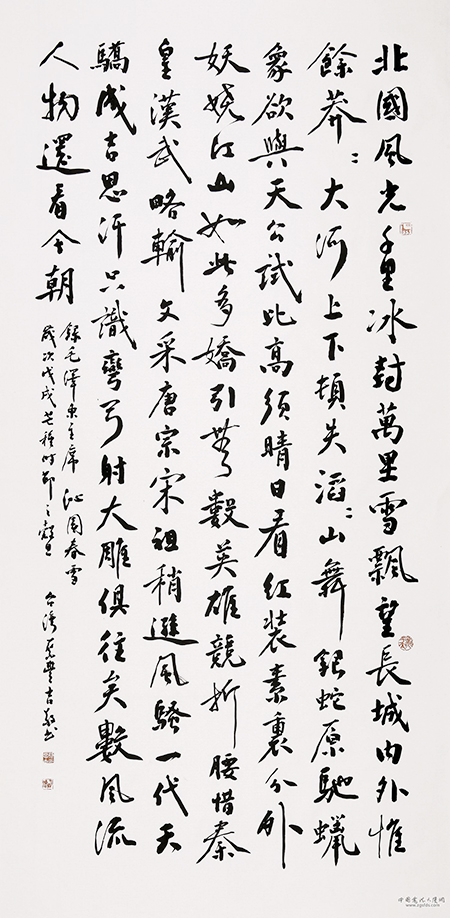 北國風光千里冰封萬里雪飄望長城內外惟
餘莽〻大河上下頓失滔〻山舞銀蛇原馳蠟
象欲與天公試比高須晴日看紅裝素裹分外
妖嬈江山如此多嬌引無數英雄競折腰惜秦
皇漢武略輸文采唐宗宋祖稍遜風騷一代天
驕成吉思汗只識彎弓射大雕俱往矣數風流
人物還看今朝
錄毛澤東主席沁園春雪
歲次戊戌芒種時節之
台灣